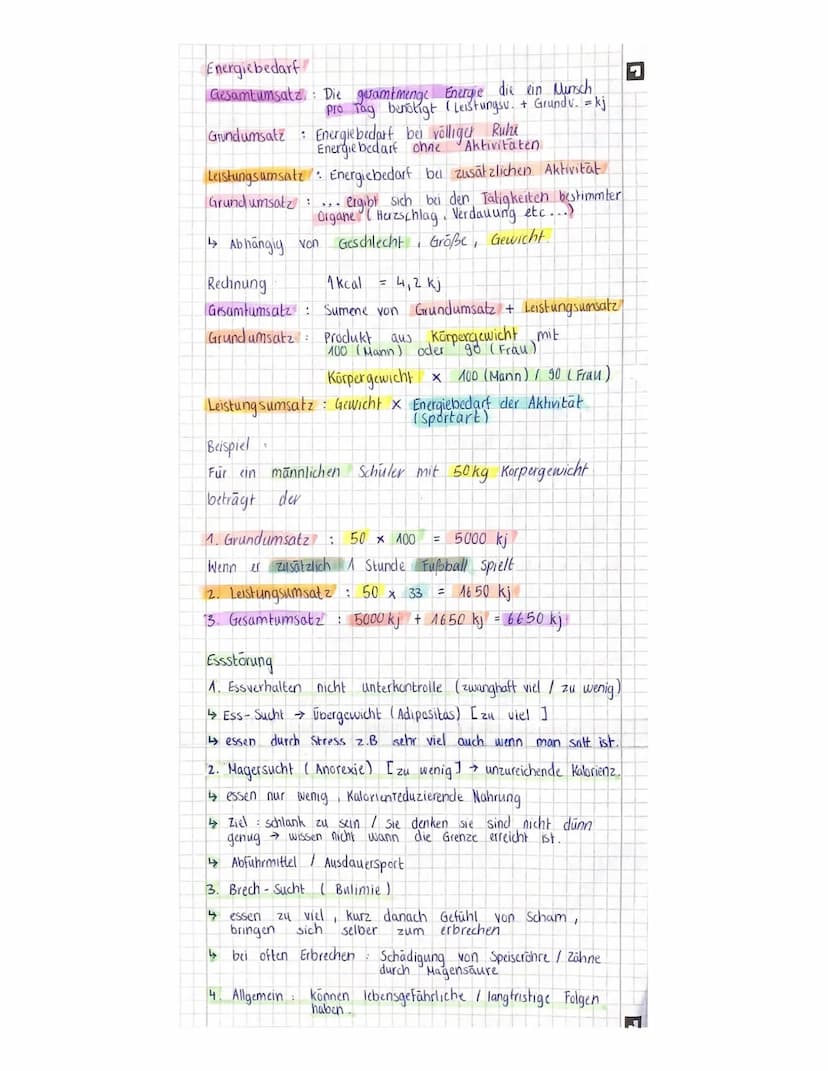 Energiebedarf
Gesamtumsatz : Die gesamtmenge Energie die ein Mensch
pro Tag benötigt (Leistungsu. + Grundu. = kj
Grundumsatz : Energiebedarf bei völliger Ruhe
Energiebedarf ohne Aktivitäten
Leistungsumsatz : Energiebedarf bei zusätzlichen Aktivität
Grundumsatz : ... ergibt sich bei den Tätigkeiten bestimmter
Organe (Herzschlag, Verdauung etc...)
↳ Abhängig von Geschlecht, Größe, Gewicht
Rechnung 1 kcal = 4,2 kj
Gesamtumsatz : Summe von Grundumsatz + Leistungsumsatz
Grundumsatz : Produkt aus Körpergewicht mit
100 (Mann) oder 90 (Frau)
Körpergewicht × 100 (Mann) / 90 (Frau)
Leistungsumsatz : Gewicht × Energiebedarf der Aktivität
(Sportart)
Beispiel :
Für ein männlichen Schüler mit 50kg Körpergewicht
beträgt der
1. Grundumsatz : 50 × 100 = 5000 kj
Wenn er zusätzlich 1 Stunde Fußball spielt
2. Leistungsumsatz : 50 × 33 = 1650 kj
3. Gesamtumsatz : 5000 kj + 1650 kj = 6650 kj
Essstörung
1. Essverhalten nicht unterkontrolle (zwanghaft viel / zu wenig)
↳ Ess-Sucht → Übergewicht (Adipositas) [zu viel]
↳ essen durch Stress z.B sehr viel auch wenn man satt ist.
2. Magersucht (Anorexie) [zu wenig] → unzureichende Kalorienz.
↳ essen nur wenig, Kalorienreduzierende Nahrung
↳ Ziel : schlank zu sein / sie denken sie sind nicht dünn
genug → wissen nicht wann die Grenze erreicht ist.
↳ Abführmittel / Ausdauersport
3. Brech-Sucht (Bulimie)
↳ essen zu viel, kurz danach Gefühl von Scham,
bringen sich selber zum erbrechen
↳ bei often Erbrechen : Schädigung von Speiseröhre / Zähne
durch Magensäure
4. Allgemein : können lebensgefährliche / langfristige Folgen
haben.